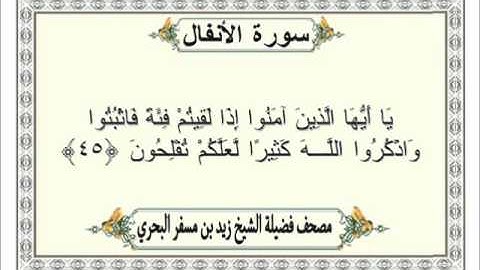 سورة الأنفال
يَا أَيُّهَا الَّذِينَ آمَنُوا إِذَا لَقِيتُمْ فِئَةً فَاثْبُتُوا
وَاذْكُرُوا اللَّـــهَ كَثِيرًا لَّعَلَّكُمْ تُفْلِحُونَ ﴿٤٥﴾
مصحف فضيلة الشيخ زيد بن مسفر البحري